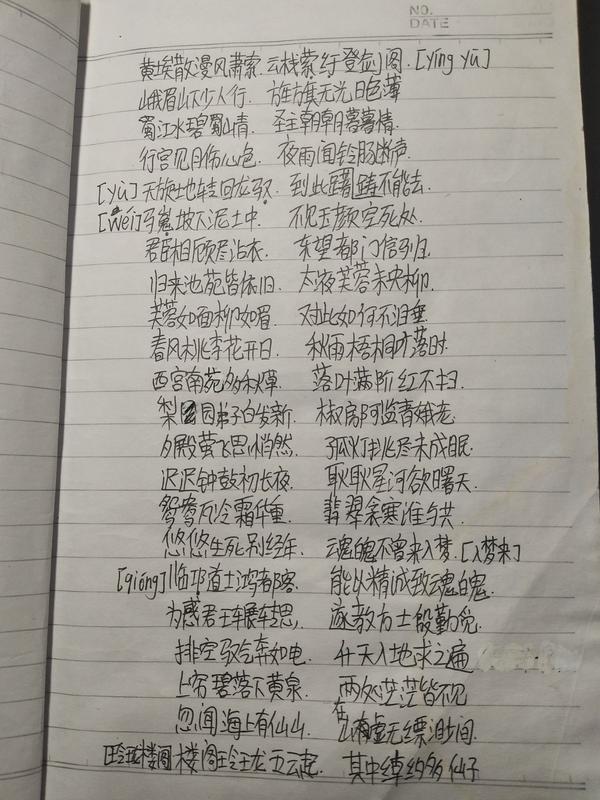 NO.
DATE
黄埃散漫风萧索. 云栈萦纡登剑阁. [yíng yū]
峨眉山下少人行. 旌旗无光日色薄
蜀江水碧蜀山青. 圣主朝朝暮暮情.
行宫见月伤心色. 夜雨闻铃肠断声.
[yù] 天旋地转回龙驭. 到此踌躇不能去.
[wéi] 马嵬坡下泥土中. 不见玉颜空死处.
君臣相顾尽沾衣. 东望都门信马归.
归来池苑皆依旧. 太液芙蓉未央柳.
芙蓉如面柳如眉. 对此如何不泪垂.
春风桃李花开日. 秋雨梧桐叶落时.
西宫南苑多秋草. 落叶满阶红不扫.
梨园弟子白发新. 椒房阿监青娥老.
夕殿萤飞思悄然. 孤灯挑尽未成眠.
迟迟钟鼓初长夜. 耿耿星河欲曙天.
鸳鸯瓦冷霜华重. 翡翠衾寒谁与共.
悠悠生死别经年. 魂魄不曾来入梦. [入梦来]
[qióng] 临邛道士鸿都客. 能以精诚致魂魄.
为感君王辗转思, 遂教方士殷勤觅.
排空驭气奔如电. 升天入地求之遍
上穷碧落下黄泉. 两处茫茫皆不见
忽闻海上有仙山. 山在虚无缥渺间.
玲珑楼阁 楼阁玲珑五云起. 其中绰约多仙子